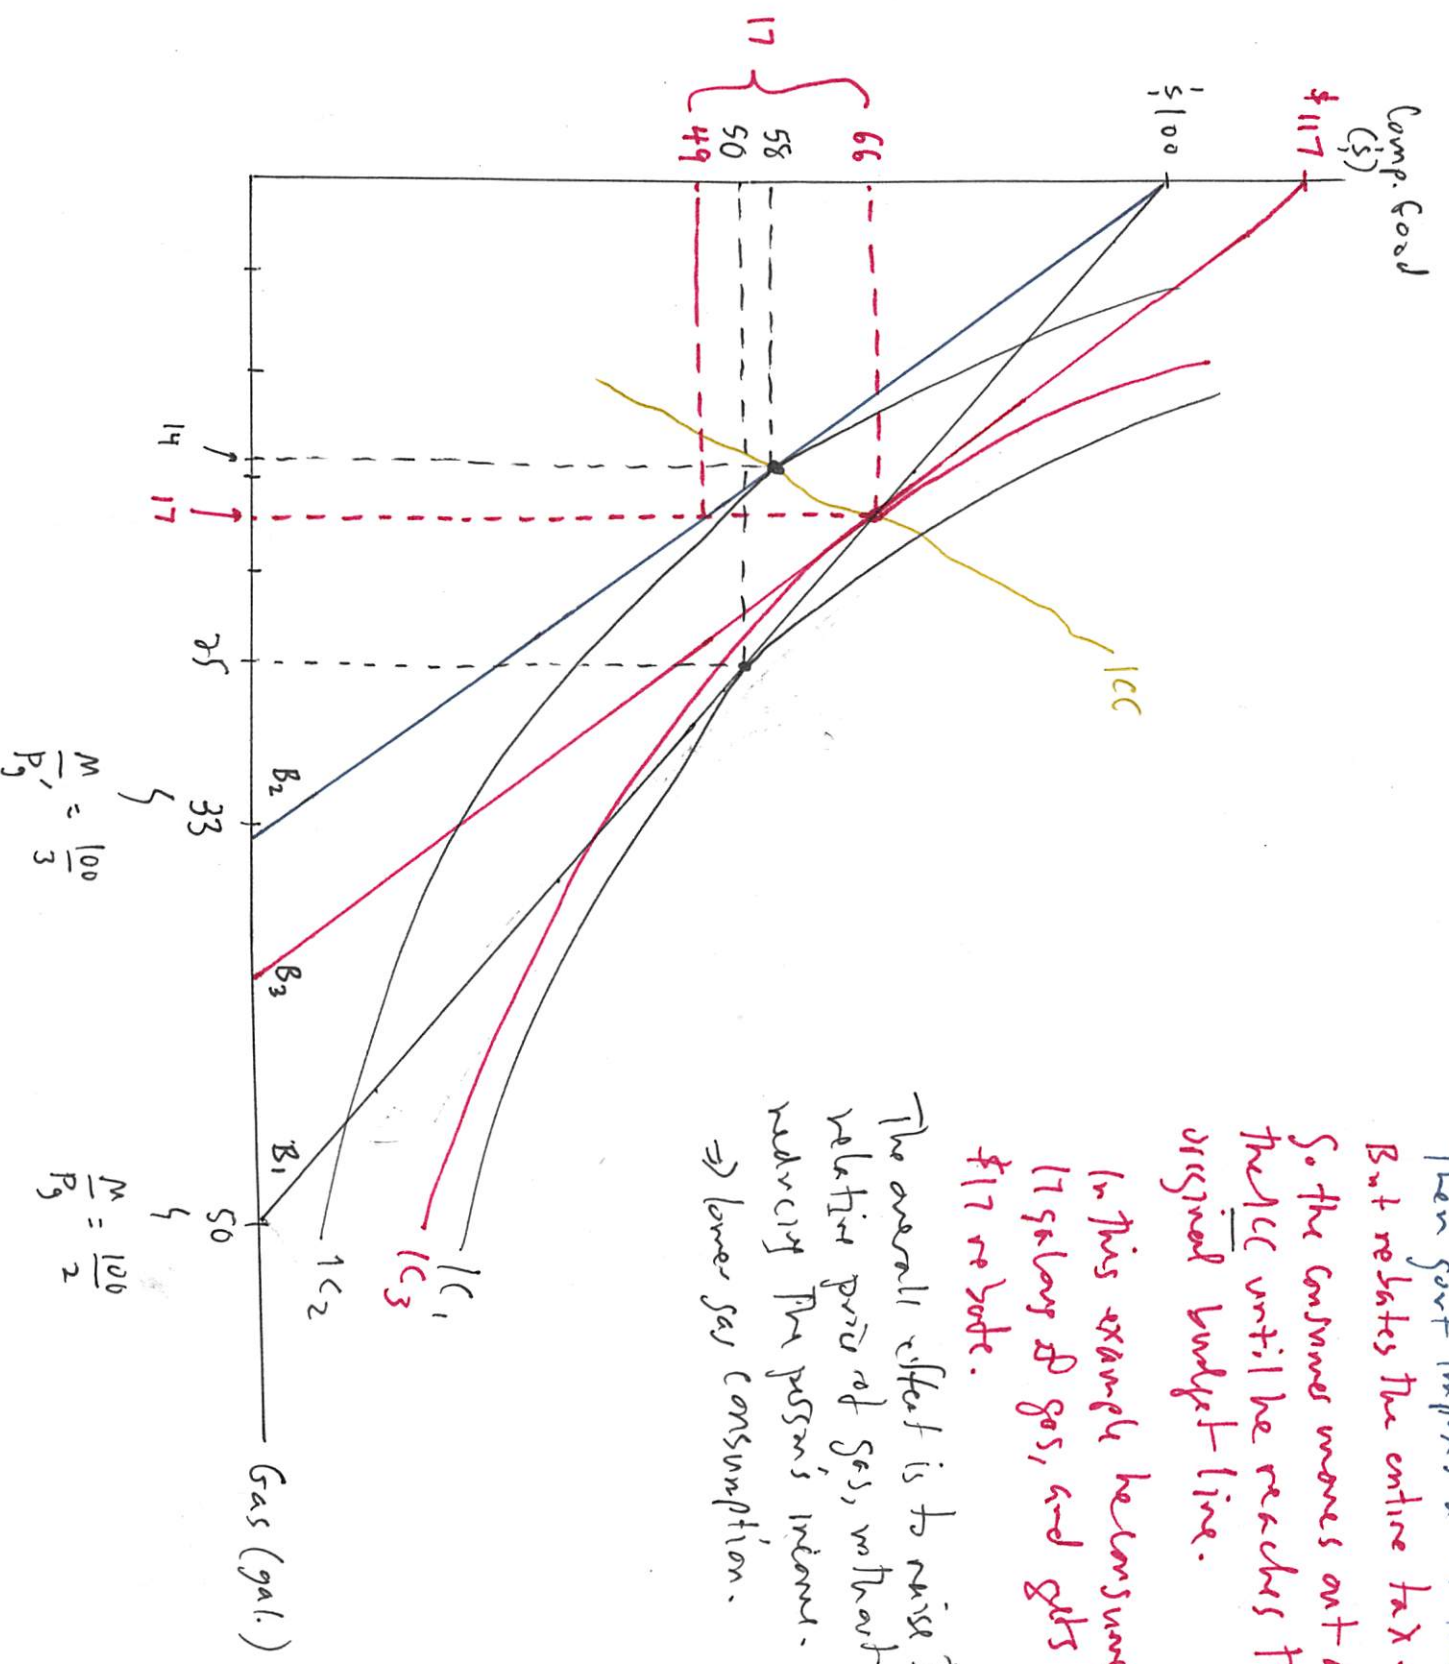 Comp. Good
($)
$117
$100
66
58
50
49
17
ICC
14
17
25
33
50
B2
B3
B1
IC2
IC3
IC1
M
Pg' = 100
3
M
Pg = 100
2
Gas (gal.)
Then govt
But rebates the entire tax
So the consumer moves out
the ICC until he reaches
original budget line.
In this example he consum
17 galons of gas, and gets
$17 rebate.
The overall effect is to raise
relative price of gas, without
reducing the person's income.
⇒ lower gas consumption.